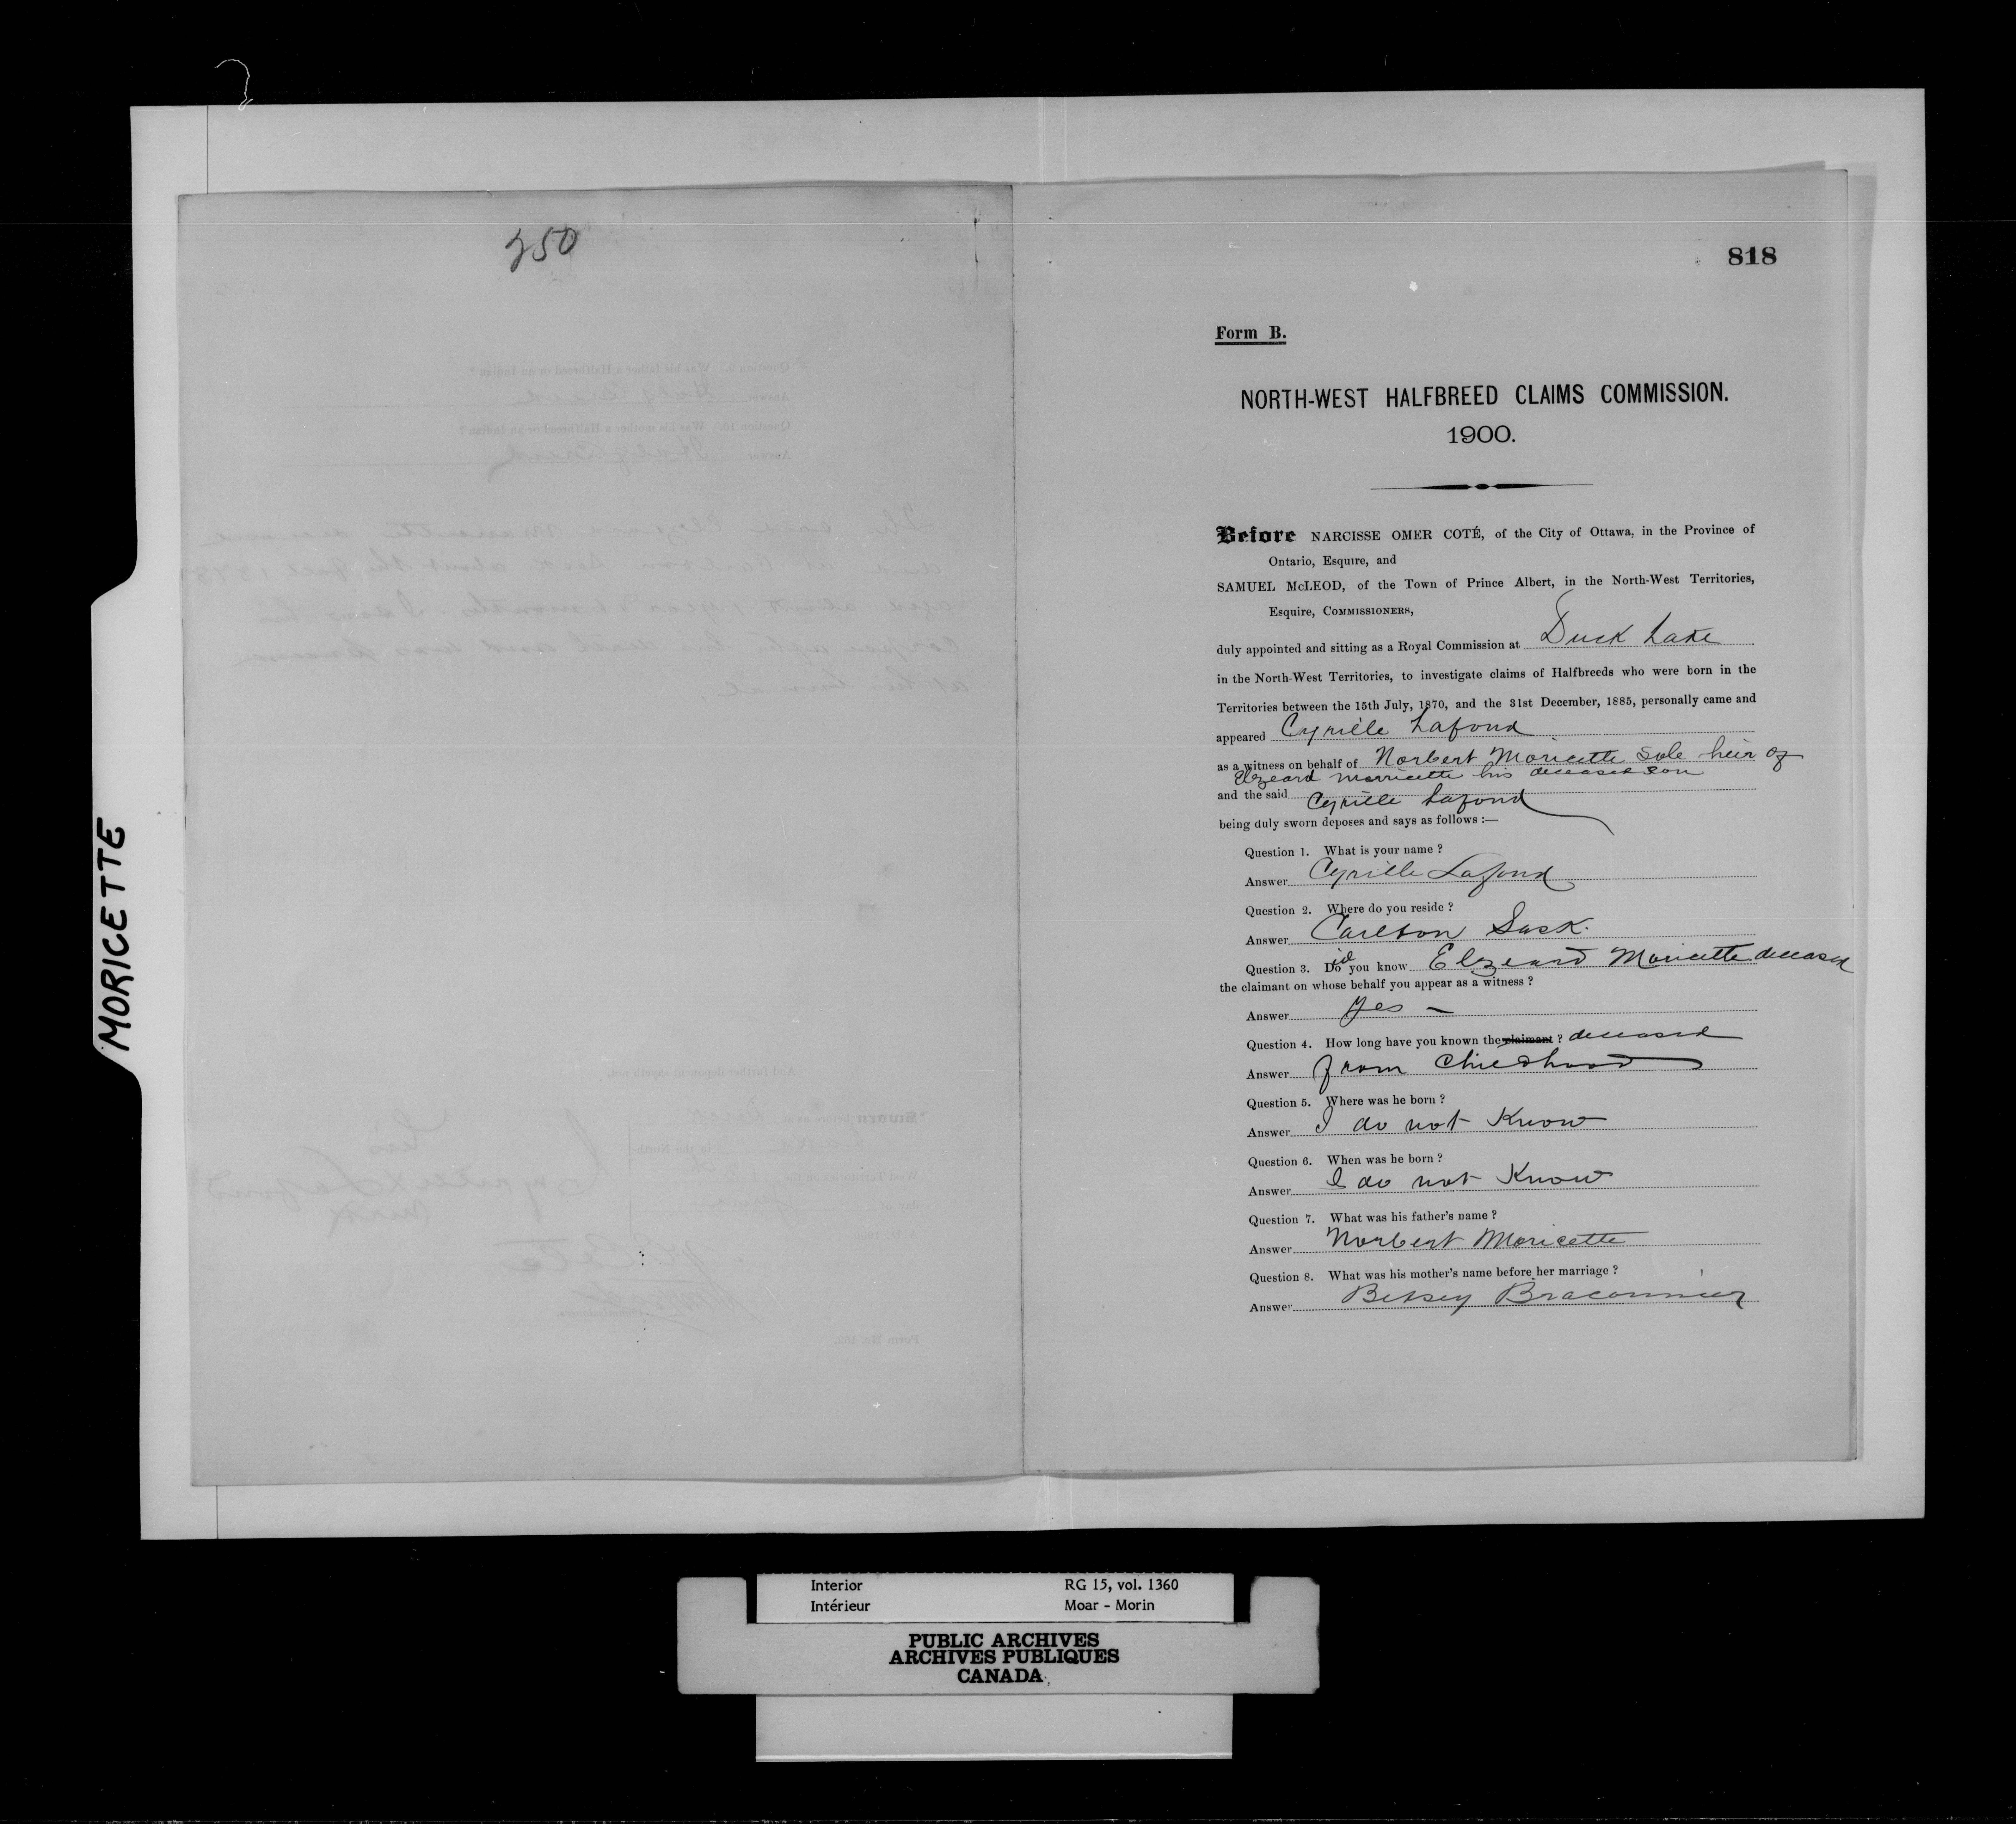 250
MORICETTE
818
Form B.
NORTH-WEST HALFBREED CLAIMS COMMISSION.
1900.
Before NARCISSE OMER COTÉ, of the City of Ottawa, in the Province of
Ontario, Esquire, and
SAMUEL McLEOD, of the Town of Prince Albert, in the North-West Territories,
Esquire, COMMISSIONERS,
duly appointed and sitting as a Royal Commission at Duck Lake
in the North-West Territories, to investigate claims of Halfbreeds who were born in the
Territories between the 15th July, 1870, and the 31st December, 1885, personally came and
appeared Cyrille Lafond
as a witness on behalf of Norbert Moricette sole heir of
Elzeard Morricette his deceased son
and the said Cyrille Lafond
being duly sworn deposes and says as follows :—
Question 1. What is your name ?
Answer Cyrille Lafond
Question 2. Where do you reside ?
Answer Carlton Sask.
Question 3. Did you know Elzeard Moricette deceased
the claimant on whose behalf you appear as a witness ?
Answer Yes —
Question 4. How long have you known the claimant ? deceased
Answer from Childhood
Question 5. Where was he born ?
Answer I do not Know
Question 6. When was he born ?
Answer I do not Know
Question 7. What was his father's name ?
Answer Norbert Moricette
Question 8. What was his mother's name before her marriage ?
Answer Betsey Braconnier
Interior RG 15, vol. 1360
Intérieur Moar - Morin
PUBLIC ARCHIVES
ARCHIVES PUBLIQUES
CANADA